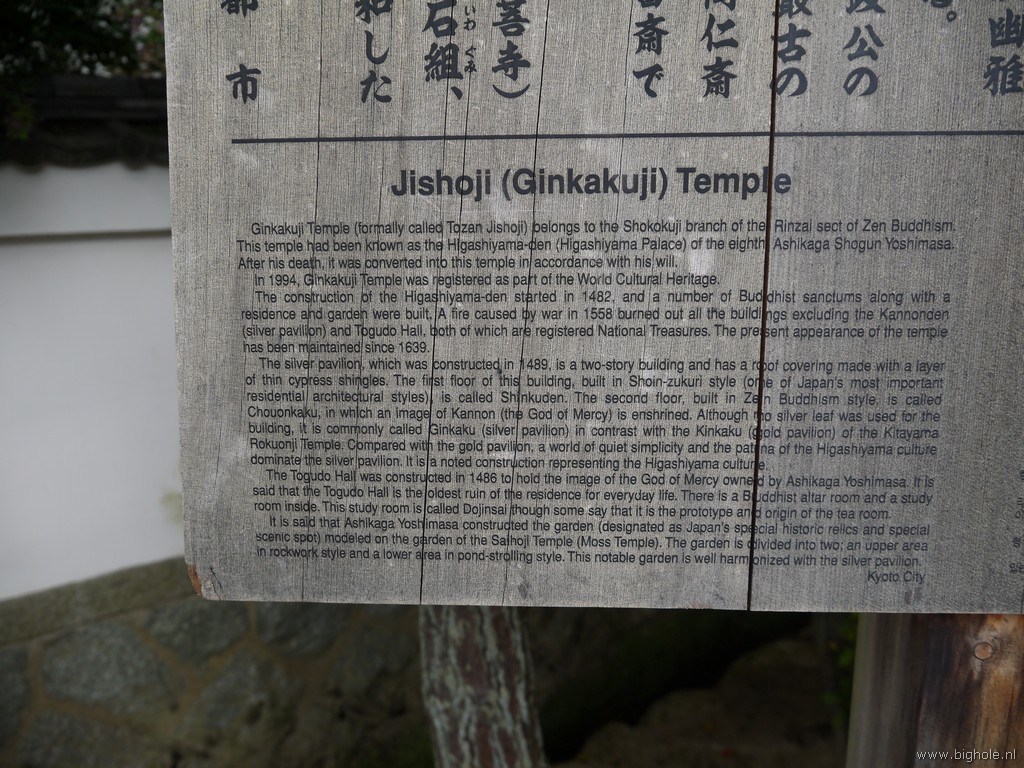 幽雅
公の
最古の
仁斎
斎で
善寺）
いわ ぐみ
石組、
和した
都 市
Jishoji (Ginkakuji) Temple
Ginkakuji Temple (formally called Tozan Jishoji) belongs to the Shokokuji branch of the Rinzai sect of Zen Buddhism.
This temple had been known as the Higashiyama-den (Higashiyama Palace) of the eighth Ashikaga Shogun Yoshimasa.
After his death, it was converted into this temple in accordance with his will.
In 1994, Ginkakuji Temple was registered as part of the World Cultural Heritage.
The construction of the Higashiyama-den started in 1482, and a number of Buddhist sanctums along with a
residence and garden were built. A fire caused by war in 1558 burned out all the buildings excluding the Kannonden
(silver pavilion) and Togudo Hall, both of which are registered National Treasures. The present appearance of the temple
has been maintained since 1639.
The silver pavilion, which was constructed in 1489, is a two-story building and has a roof covering made with a layer
of thin cypress shingles. The first floor of this building, built in Shoin-zukuri style (one of Japan's most important
residential architectural styles), is called Shinkuden. The second floor, built in Zen Buddhism style, is called
Chouonkaku, in which an image of Kannon (the God of Mercy) is enshrined. Although no silver leaf was used for the
building, it is commonly called Ginkaku (silver pavilion) in contrast with the Kinkaku (gold pavilion) of the Kitayama
Rokuonji Temple. Compared with the gold pavilion, a world of quiet simplicity and the patina of the Higashiyama culture
dominate the silver pavilion. It is a noted construction representing the Higashiyama culture.
The Togudo Hall was constructed in 1486 to hold the image of the God of Mercy owned by Ashikaga Yoshimasa. It is
said that the Togudo Hall is the oldest ruin of the residence for everyday life. There is a Buddhist altar room and a study
room inside. This study room is called Dojinsai though some say that it is the prototype and origin of the tea room.
It is said that Ashikaga Yoshimasa constructed the garden (designated as Japan's special historic relics and special
scenic spot) modeled on the garden of the Saihoji Temple (Moss Temple). The garden is divided into two; an upper area
in rockwork style and a lower area in pond-strolling style. This notable garden is well harmonized with the silver pavilion.
Kyoto City
www.bighole.nl